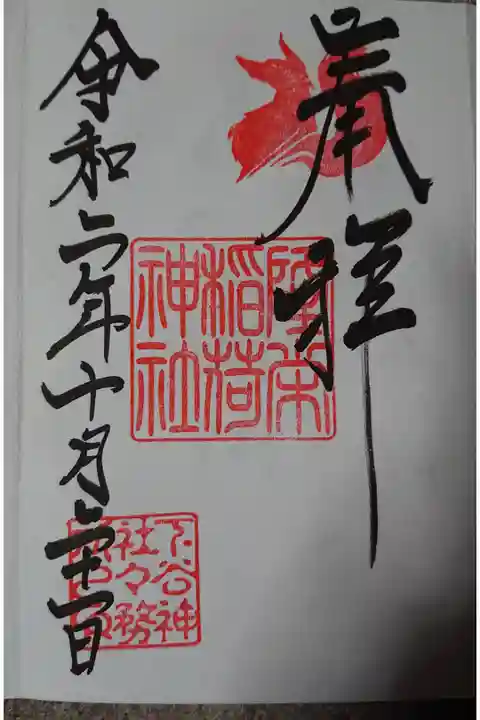 奉拝
隆栄
稲荷
神社
令和二年十月二十一日
下谷神
社々務